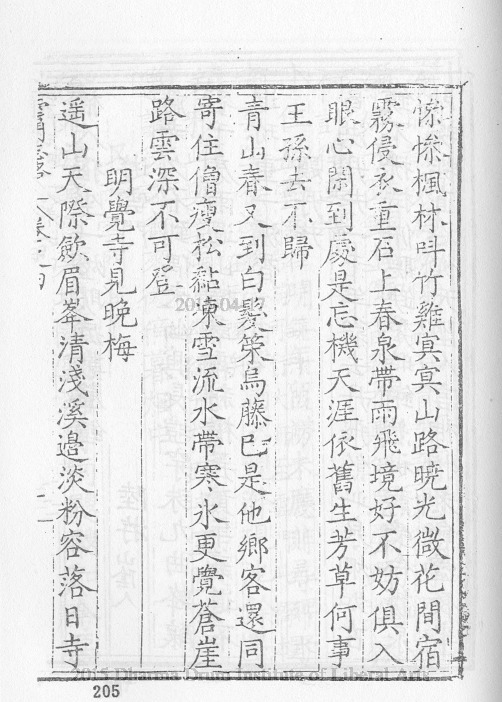 惨惨楓林呌竹雞冥冥山路曉光微花間宿
霧侵衣重石上春泉帶雨飛境好不妨俱入
眼心閑到處是忘機天涯依舊生芳草何事
王孫去不歸
青山春又到白髮策烏藤已是他鄉客還同
寄住僧瘦松黏凍雪流水帶寒氷更覺蒼崖
路雲深不可登
明覺寺見晚梅
遥山天際歛眉峯清淺溪邉淡粉容落日寺
205
2015 Dharma Drum Institute of Liberal Arts